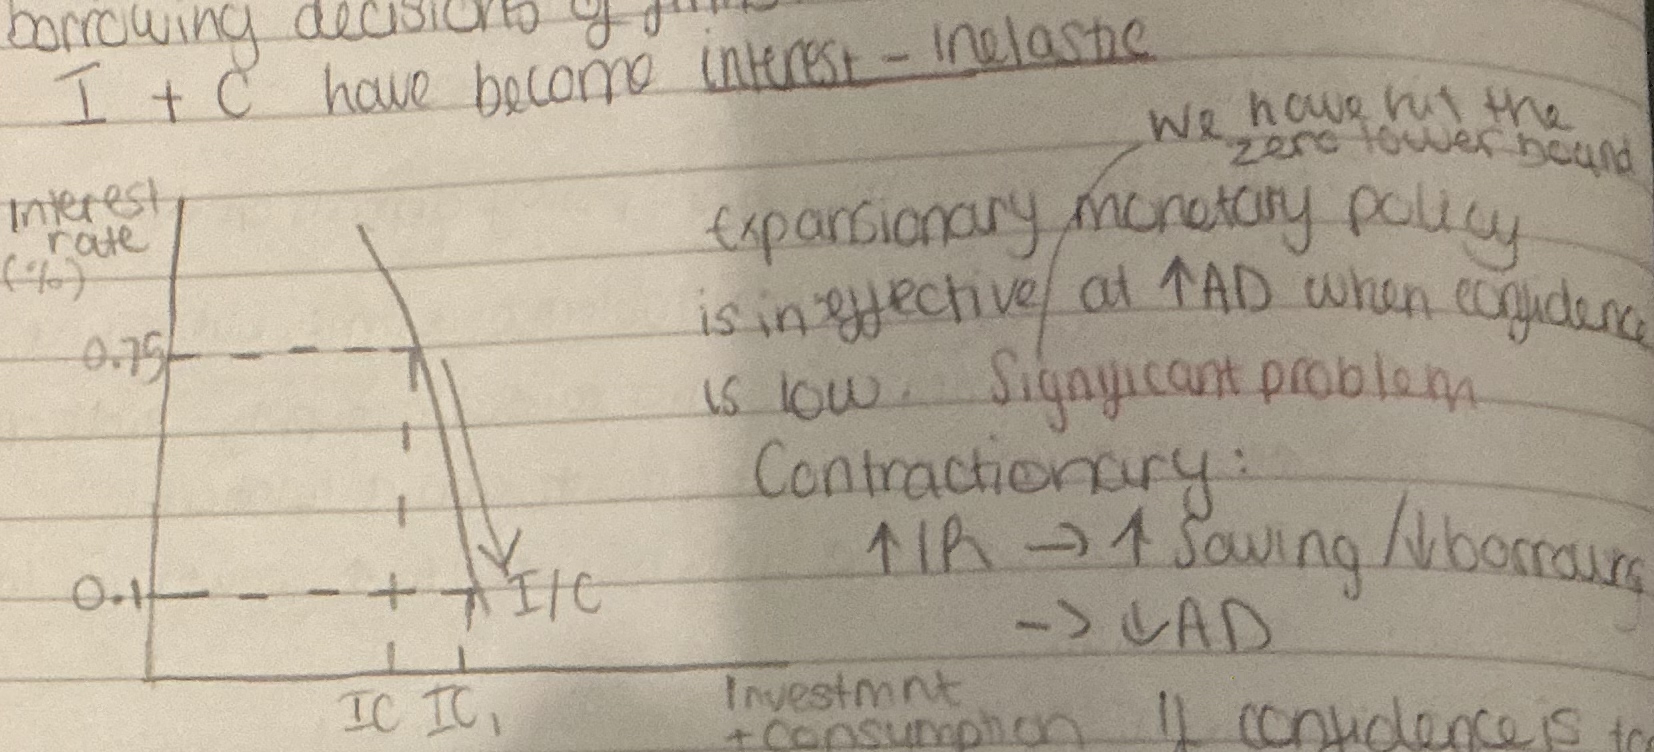 borrowing decisions of
I + C have become interest-inelastic
We have hit the
zero lower bound
Interest
rate
(%)
Expansionary monetary policy
is ineffective at ↑AD when confidence
is low. Significant problem
0.75
Contractionary:
↑IR → ↑ Saving /↓borrowing
→ ↓AD
0.1
I/C
IC IC₁
Investmnt
+consumption
If confidence is